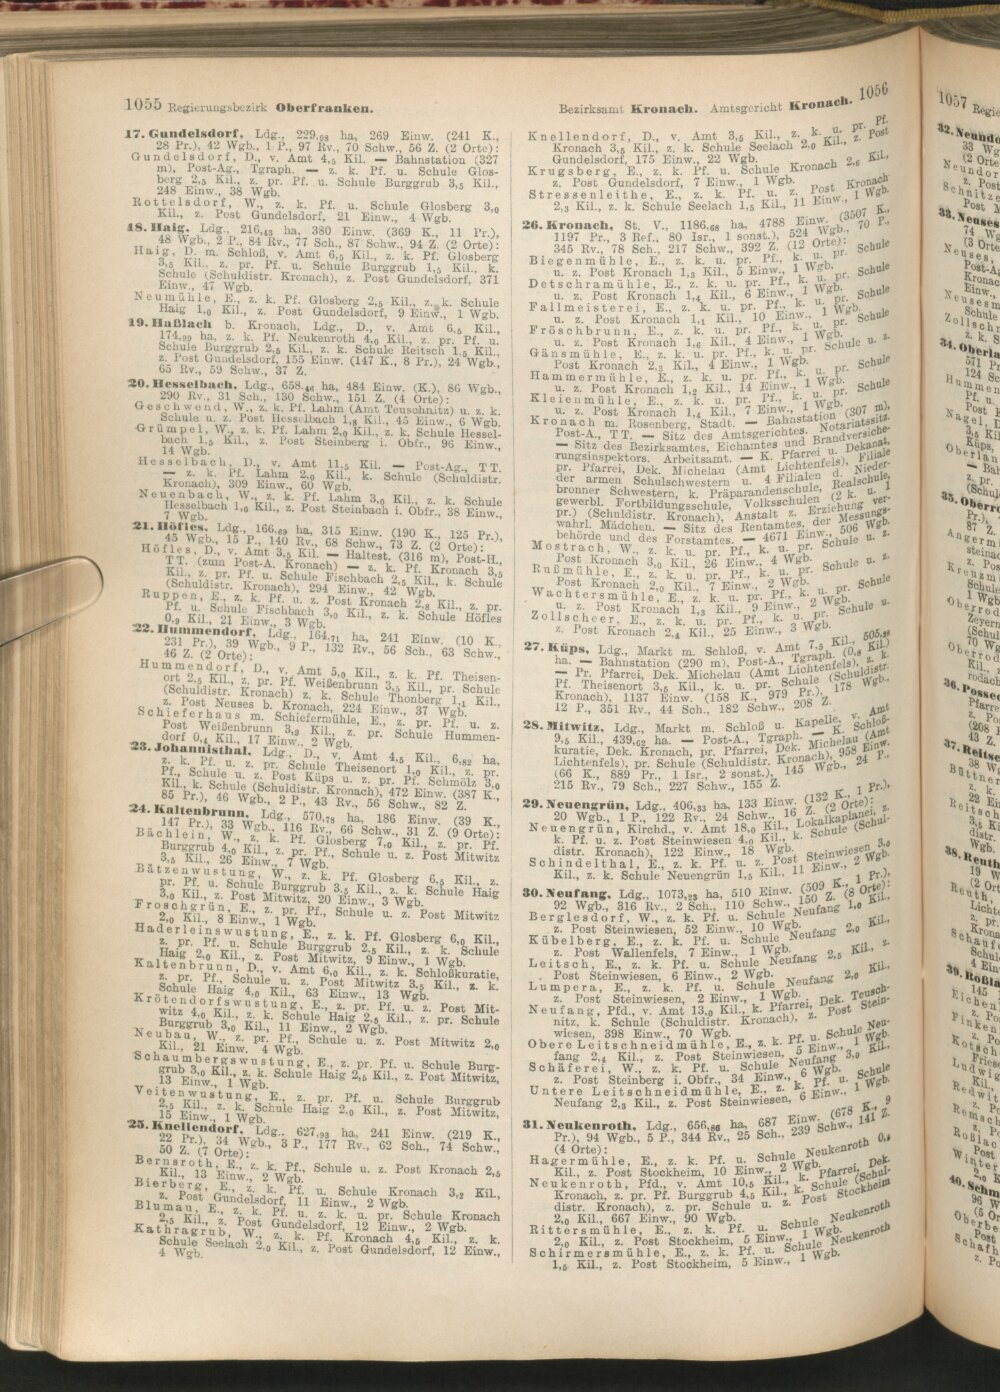 1055 Regierungsbezirk Oberfranken.
17. Gundelsdorf, Ldg., 229,08 ha, 269 Einw. (241 K.,
28 Pr.), 42 Wgb., 1 P., 97 Rv., 70 Schw., 56 Z. (2 Orte):
Gundelsdorf, D., v. Amt 4,5 Kil. — Bahnstation (327
m), Post-Ag., Tgraph. — z. k. Pf. u. Schule Glos-
berg 2,5 Kil., z. pr. Pf. u. Schule Burggrub 3,5 Kil.,
248 Einw., 38 Wgb.
Rottelsdorf, W., z. k. Pf. u. Schule Glosberg 3,0
Kil., z. Post Gundelsdorf, 21 Einw., 4 Wgb.
18. Haig, Ldg., 216,43 ha, 380 Einw. (369 K., 11 Pr.),
48 Wgb., 2 P., 84 Rv., 77 Sch., 87 Schw., 94 Z. (2 Orte):
Haig, D. m. Schloß, v. Amt 6,5 Kil., z. k. Pf. Glosberg
3,5 Kil., z. pr. Pf. u. Schule Burggrub 1,5 Kil., k.
Schule (Schuldistr. Kronach), z. Post Gundelsdorf, 371
Einw., 47 Wgb.
Neumühle, E., z. k. Pf. Glosberg 2,5 Kil., z. k. Schule
Haig 1,0 Kil., z. Post Gundelsdorf, 9 Einw., 1 Wgb.
19. Haßlach b. Kronach, Ldg., D., v. Amt 6,5 Kil.,
174,99 ha, z. k. Pf. Neukenroth 4,0 Kil., z. pr. Pf. u.
Schule Burggrub 2,5 Kil., z. k. Schule Reitsch 1,5 Kil.,
z. Post Gundelsdorf, 155 Einw. (147 K., 8 Pr.), 24 Wgb.,
65 Rv., 59 Schw., 37 Z.
20. Hesselbach, Ldg., 658,46 ha, 484 Einw. (K.), 86 Wgb.,
290 Rv., 31 Sch., 130 Schw., 151 Z. (4 Orte):
Geschwend, W., z. k. Pf. Lahm (Amt Teuschnitz) u. z. k.
Schule u. z. Post Hesselbach 1,8 Kil., 45 Einw., 6 Wgb.
Grümpel, W., z. k. Pf. Lahm 2,0 Kil., z. k. Schule Hessel-
bach 1,5 Kil., z. Post Steinberg i. Obfr., 96 Einw.,
14 Wgb.
Hesselbach, D., v. Amt 11,5 Kil. — Post-Ag., TT.
— z. k. Pf. Lahm 2,0 Kil., k. Schule (Schuldistr.
Kronach), 309 Einw., 60 Wgb.
Neuenbach, W., z. k. Pf. Lahm 3,0 Kil., z. k. Schule
Hesselbach 1,0 Kil., z. Post Steinbach i. Obfr., 38 Einw.,
7 Wgb.
21. Höfles, Ldg., 166,69 ha, 315 Einw. (190 K., 125 Pr.),
45 Wgb., 15 P., 140 Rv., 68 Schw., 73 Z. (2 Orte):
Höfles, D., v. Amt 3,5 Kil. — Haltest. (316 m), Post-H.,
TT. (zum Post-A. Kronach) — z. k. Pf. Kronach 3,5
Kil., z. pr. Pf. u. Schule Fischbach 2,5 Kil., k. Schule
(Schuldistr. Kronach), 294 Einw., 42 Wgb.
Ruppen, E., z. k. Pf. u. z. Post Kronach 2,8 Kil., z. pr.
Pf. u. Schule Fischbach 3,0 Kil., z. k. Schule Höfles
0,9 Kil., 21 Einw., 3 Wgb.
22. Hummendorf, Ldg., 164,71 ha, 241 Einw. (10 K.,
231 Pr.), 39 Wgb., 9 P., 132 Rv., 56 Sch., 63 Schw.,
46 Z. (2 Orte):
Hummendorf, D., v. Amt 5,0 Kil., z. k. Pf. Theisen-
ort 2,5 Kil., z. pr. Pf. Weißenbrunn 3,5 Kil., pr. Schule
(Schuldistr. Kronach) z. k. Schule Thonberg 1,1 Kil.,
z. Post Neuses b. Kronach, 224 Einw., 37 Wgb.
Schieferhaus m. Schiefermühle, E., z. pr. Pf. u. z.
Post Weißenbrunn 3,9 Kil., z. pr. Schule Hummen-
dorf 0,4 Kil., 17 Einw., 2 Wgb.
23. Johannisthal, Ldg., D., v. Amt 4,5 Kil., 6,82 ha,
z. k. Pf. u. z. pr. Schule Theisenort 1,0 Kil., z. pr.
Pf., Schule u. z. Post Küps u. z. pr. Pf. Schmölz 3,0
Kil., k. Schule (Schuldistr. Kronach), 472 Einw. (387 K.,
85 Pr.), 46 Wgb., 2 P., 43 Rv., 56 Schw., 82 Z.
24. Kaltenbrunn, Ldg., 570,78 ha, 186 Einw. (39 K.,
147 Pr.), 33 Wgb., 116 Rv., 66 Schw., 31 Z. (9 Orte):
Bächlein, W., z. k. Pf. Glosberg 7,0 Kil., z. pr. Pf.
Burggrub 4,0 Kil., z. pr. Pf., Schule u. z. Post Mitwitz
3,5 Kil., 26 Einw., 7 Wgb.
Bätzenwustung, W., z. k. Pf. Glosberg 6,5 Kil., z.
pr. Pf. u. Schule Burggrub 3,5 Kil., z. k. Schule Haig
3,0 Kil., z. Post Mitwitz, 20 Einw., 3 Wgb.
Froschgrün, E., z. pr. Pf., Schule u. z. Post Mitwitz
2,0 Kil., 8 Einw., 1 Wgb.
Haderleinswustung, E., z. k. Pf. Glosberg 6,0 Kil.,
z. pr. Pf. u. Schule Burggrub 2,5 Kil., z. k. Schule
Haig 2,0 Kil., z. Post Mitwitz, 9 Einw., 1 Wgb.
Kaltenbrunn, D., v. Amt 6,0 Kil., z. k. Schloßkuratie,
z. pr. Pf., Schule u. z. Post Mitwitz 3,5 Kil., z. k.
Schule Haig 4,0 Kil., 63 Einw., 13 Wgb.
Krötendorfswustung, E., z. pr. Pf. u. z. Post Mit-
witz 4,0 Kil., z. k. Schule Haig 2,5 Kil., z. pr. Schule
Burggrub 3,0 Kil., 11 Einw., 2 Wgb.
Neubau, W., z. pr. Pf., Schule u. z. Post Mitwitz 2,0
Kil., 21 Einw. 4 Wgb.
Schaumbergswustung, E., z. pr. Pf. u. Schule Burg-
grub 3,0 Kil., z. k. Schule Haig 2,5 Kil., z. Post Mitwitz,
13 Einw., 1 Wgb.
Veitenwustung, E., z. pr. Pf. u. Schule Burggrub
2,5 Kil., z. k. Schule Haig 2,0 Kil., z. Post Mitwitz,
15 Einw., 1 Wgb.
25. Knellendorf, Ldg., 627,93 ha, 241 Einw. (219 K.,
22 Pr.), 34 Wgb., 3 P., 177 Rv., 62 Sch., 74 Schw.,
50 Z. (7 Orte):
Bernsroth, E., z. k. Pf., Schule u. z. Post Kronach 2,5
Kil., 13 Einw., 2 Wgb.
Bierberg, E., z. k. Pf. u. Schule Kronach 3,2 Kil.,
z. Post Gundelsdorf, 11 Einw., 2 Wgb.
Blumau, E., z. k. Pf. u. z. k. u. pr. Schule Kronach
2,5 Kil., z. Post Gundelsdorf, 12 Einw., 2 Wgb.
Kathragrub, W., z. k. Pf. Kronach 4,5 Kil., z. k.
Schule Seelach 2,0 Kil., z. Post Gundelsdorf, 12 Einw.,
4 Wgb.
Bezirksamt Kronach. Amtsgericht Kronach. 1056
Knellendorf, D., v. Amt 3,5 Kil., z. k. u. pr. Pf.
Kronach 3,5 Kil., z. k. Schule Seelach 2,0 Kil., z. Post
Gundelsdorf, 175 Einw., 22 Wgb.
Krugsberg, E., z. k. Pf. u. Schule Kronach 2,6 Kil.,
z. Post Gundelsdorf, 7 Einw., 1 Wgb.
Stressenleithe, E., z. k. Pf. u. z. Post Kronach
2,3 Kil., z. k. Schule Seelach 1,5 Kil., 11 Einw., 1 Wgb.
26. Kronach, St. V., 1186,68 ha, 4788 Einw. (3507 K.,
1197 Pr., 3 Ref., 80 Isr., 1 sonst.), 524 Wgb., 70 P.,
345 Rv., 78 Sch., 217 Schw., 392 Z. (12 Orte):
Biegenmühle, E., z. k. u. pr. Pf., k. u. pr. Schule
u. z. Post Kronach 1,3 Kil., 5 Einw., 1 Wgb.
Detschramühle, E., z. k. u. pr. Pf., k. u. pr. Schule
u. z. Post Kronach 1,4 Kil., 6 Einw., 1 Wgb.
Fallmeisterei, E., z. k. u. pr. Pf., k. u. pr. Schule
u. z. Post Kronach 1,1 Kil., 10 Einw., 1 Wgb.
Fröschbrunn, E., z. k. u. pr. Pf., k. u. pr. Schule
u. z. Post Kronach 1,6 Kil., 4 Einw., 1 Wgb.
Gänsmühle, E., z. k. u. pr. Pf., k. u. pr. Schule u. z.
Post Kronach 2,3 Kil., 4 Einw., 1 Wgb.
Hammermühle, E., z. k. u. pr. Pf., k. u. pr. Schule
u. z. Post Kronach 1,2 Kil., 14 Einw., 1 Wgb.
Kleienmühle, E., z. k. u. pr. Pf., k. u. pr. Schule
u. z. Post Kronach 1,4 Kil., 7 Einw., 1 Wgb.
Kronach m. Rosenberg, Stadt. — Bahnstation (307 m),
Post-A., TT. — Sitz des Amtsgerichtes. Notariatssitz.
— Sitz des Bezirksamtes, Eichamtes und Brandversiche-
rungsinspektors. Arbeitsamt. — K. Pfarrei u. Dekanat,
pr. Pfarrei, Dek. Michelau (Amt Lichtenfels), Filiale
der armen Schulschwestern u. 4 Filialen d. Nieder-
bronner Schwestern, k. Präparandenschule, Realschule,
gewerbl. Fortbildungsschule, Volksschulen (2 k. u. 1
pr.) (Schuldistr. Kronach), Anstalt z. Erziehung ver-
wahrl. Mädchen. — Sitz des Rentamtes, der Messungs-
behörde und des Forstamtes. — 4671 Einw., 506 Wgb.
Mostrach, W., z. k. u. pr. Pf., k. u. pr. Schule u. z.
Post Kronach 3,0 Kil., 26 Einw., 4 Wgb.
Rußmühle, E., z. k. u. pr. Pf., k. u. pr. Schule u. z.
Post Kronach 2,0 Kil., 7 Einw., 2 Wgb.
Wachtersmühle, E., z. k. u. pr. Pf., k. u. pr. Schule
u. z. Post Kronach 1,3 Kil., 9 Einw., 2 Wgb.
Zollscheer, E., z. k. u. pr. Pf., k. u. pr. Schule u.
z. Post Kronach 2,4 Kil., 25 Einw., 3 Wgb.
27. Küps, Ldg., Markt m. Schloß, v. Amt 7,5 Kil., 505,28
ha. — Bahnstation (290 m), Post-A., Tgraph. (0,8 Kil.)
— Pr. Pfarrei, Dek. Michelau (Amt Lichtenfels), z. k.
Pf. Theisenort 3,5 Kil., k. u. pr. Schule (Schuldistr.
Kronach), 1137 Einw. (158 K., 979 Pr.), 178 Wgb.,
12 P., 351 Rv., 44 Sch., 182 Schw., 208 Z.
28. Mitwitz, Ldg., Markt m. Schloß u. Kapelle, v. Amt
9,5 Kil., 439,62 ha. — Post-A., Tgraph. — K. Schloß-
kuratie, Dek. Kronach, pr. Pfarrei, Dek. Michelau (Amt
Lichtenfels), pr. Schule (Schuldistr. Kronach), 958 Einw.
(66 K., 889 Pr., 1 Isr., 2 sonst.), 145 Wgb., 24 P.,
215 Rv., 79 Sch., 227 Schw., 155 Z.
29. Neuengrün, Ldg., 406,33 ha, 133 Einw. (132 K., 1 Pr.),
20 Wgb., 1 P., 122 Rv., 24 Schw., 16 Z. (2 Orte):
Neuengrün, Kirchd., v. Amt 18,0 Kil., Lokalkaplanei, z.
k. Pf. u. z. Post Steinwiesen 4,0 Kil., k. Schule (Schul-
distr. Kronach), 122 Einw., 18 Wgb.
Schindelthal, E., z. k. Pf. u. z. Post Steinwiesen 3,0
Kil., z. k. Schule Neuengrün 1,5 Kil., 11 Einw., 2 Wgb.
30. Neufang, Ldg., 1073,23 ha, 510 Einw. (509 K., 1 Pr.),
92 Wgb., 316 Rv., 2 Sch., 110 Schw., 150 Z. (8 Orte):
Berglesdorf, W., z. k. Pf. u. Schule Neufang 1,0 Kil.,
z. Post Steinwiesen, 52 Einw., 10 Wgb.
Kübelberg, E., z. k. Pf. u. Schule Neufang 2,0 Kil.,
z. Post Wallenfels, 7 Einw., 1 Wgb.
Leitsch, E., z. k. Pf. u. Schule Neufang 2,5 Kil., z.
Post Steinwiesen, 6 Einw., 2 Wgb.
Lumpera, E., z. k. Pf. u. Schule Neufang 2,0 Kil.,
z. Post Steinwiesen, 2 Einw., 1 Wgb.
Neufang, Pfd., v. Amt 13,0 Kil., k. Pfarrei, Dek. Teusch-
nitz, k. Schule (Schuldistr. Kronach), z. Post Stein-
wiesen, 398 Einw., 70 Wgb.
Obere Leitschneidmühle, E., z. k. Pf. u. Schule Neu-
fang 2,4 Kil., z. Post Steinwiesen, 5 Einw., 1 Wgb.
Schäferei, W., z. k. Pf. u. Schule Neufang 3,0 Kil.,
z. Post Steinberg i. Obfr., 34 Einw., 6 Wgb.
Untere Leitschneidmühle, E., z. k. Pf. u. Schule
Neufang 2,3 Kil., z. Post Steinwiesen, 6 Einw., 1 Wgb.
31. Neukenroth, Ldg., 656,86 ha, 687 Einw. (678 K., 9
Pr.), 94 Wgb., 5 P., 344 Rv., 25 Sch., 239 Schw., 141 Z.
(4 Orte):
Hagermühle, E., z. k. Pf. u. Schule Neukenroth 0,8
Kil., z. Post Stockheim, 10 Einw., 2 Wgb.
Neukenroth, Pfd., v. Amt 10,5 Kil., k. Pfarrei, Dek.
Kronach, z. pr. Pf. Burggrub 4,5 Kil., k. Schule (Schul-
distr. Kronach), z. pr. Schule u. z. Post Stockheim
2,0 Kil., 667 Einw., 90 Wgb.
Rittersmühle, E., z. k. Pf. u. Schule Neukenroth
2,0 Kil., z. Post Stockheim, 5 Einw., 1 Wgb.
Schirmersmühle, E., z. k. Pf. u. Schule Neukenroth
1,5 Kil., z. Post Stockheim, 5 Einw., 1 Wgb.
1057